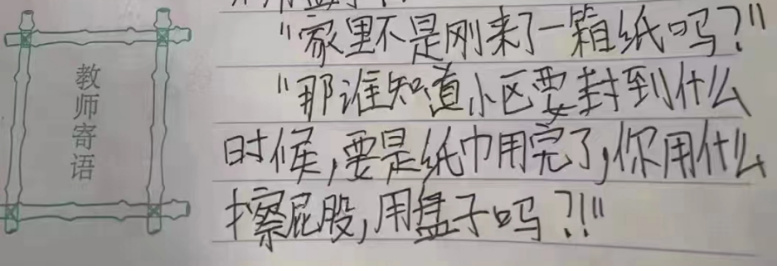 教师寄语
"家里不是刚来了一箱纸吗?"
"那谁知道小区要封到什么
时候,要是纸巾用完了,你用什么
擦屁股,用盘子吗?!"